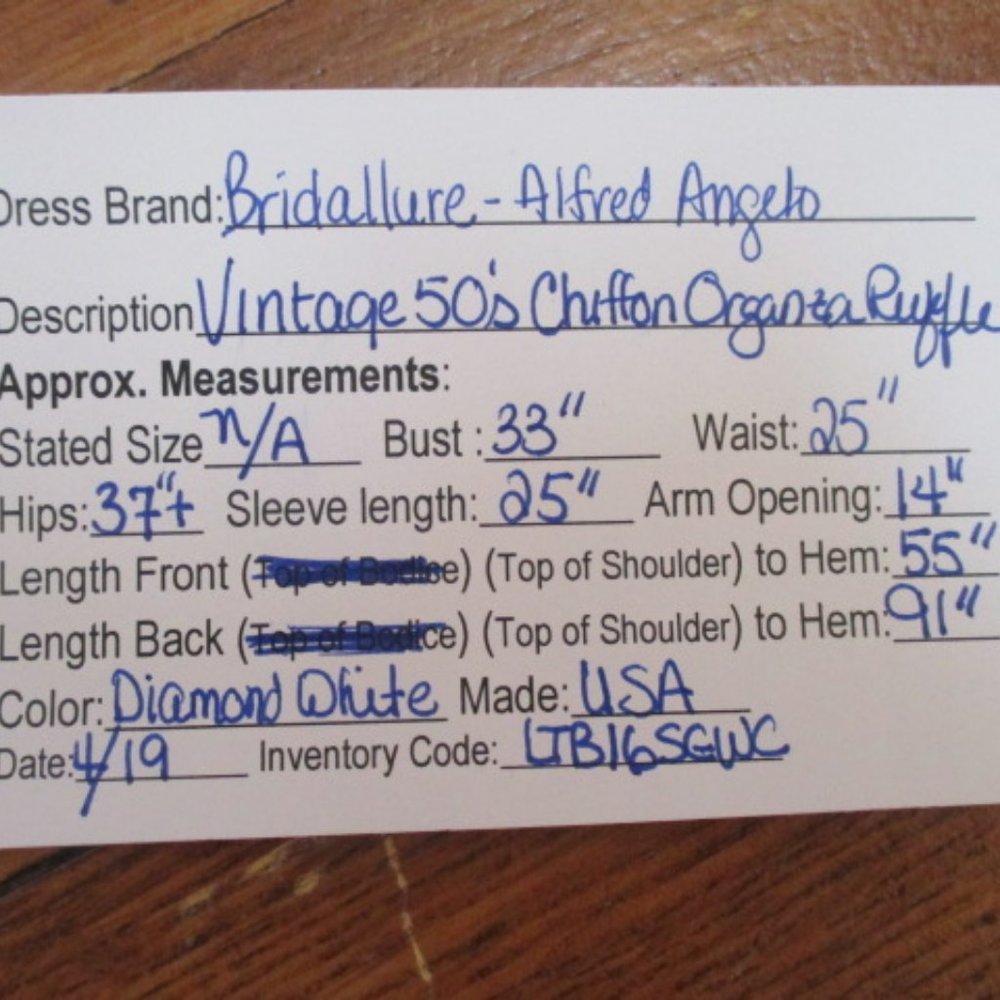 Dress Brand: Bridallure - Alfred Angelo
Description Vintage 50's Chiffon Organza Ruffle
Approx. Measurements:
Stated Size n/A Bust : 33" Waist: 25"
Hips: 37"+ Sleeve length: 25" Arm Opening: 14"
Length Front (Top of Bodice) (Top of Shoulder) to Hem: 55"
Length Back (Top of Bodice) (Top of Shoulder) to Hem: 91"
Color: Diamond White Made: USA
Date: 4/19 Inventory Code: LTB16SGWC